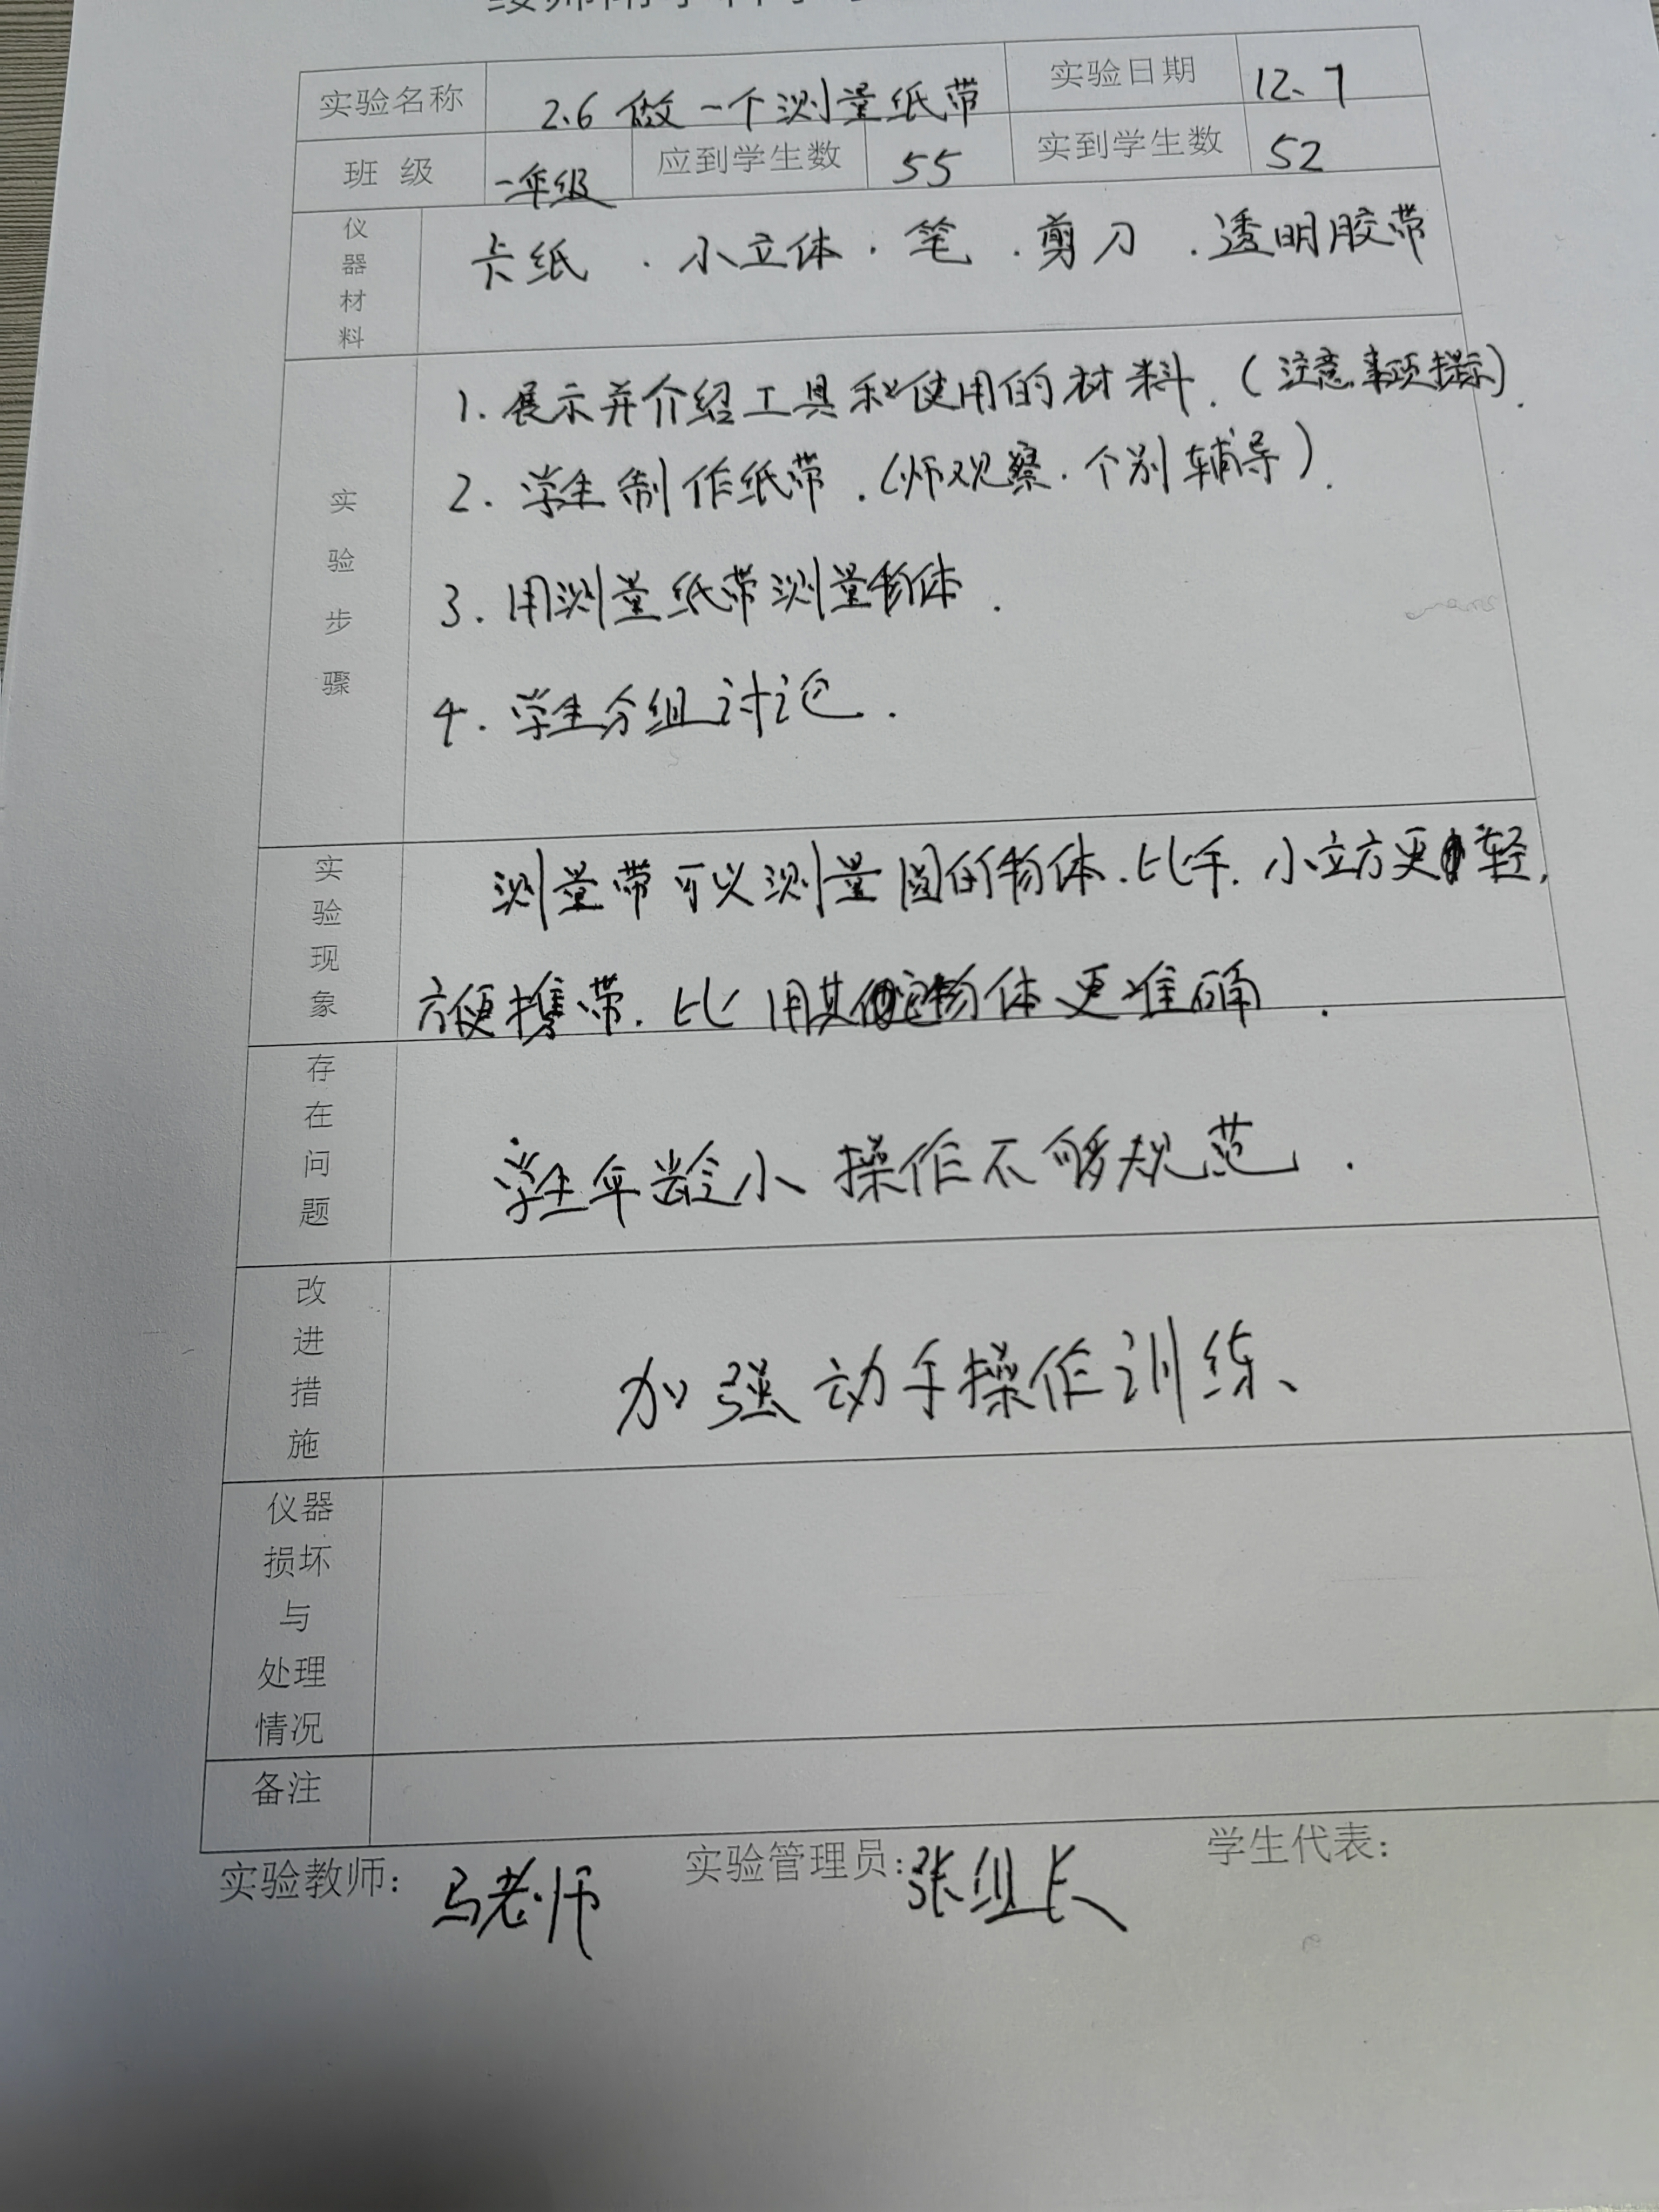 实验名称 2.6 做一个测量纸带 实验日期 12.7
班 级 一年级 应到学生数 55 实到学生数 52
仪器材料 卡纸 . 小立体 . 笔 . 剪刀 . 透明胶带
实验步骤
1. 展示并介绍工具和使用的材料.(注意事项提示).
2. 学生制作纸带.(师观察.个别辅导).
3. 用测量纸带测量物体.
4. 学生分组讨论.
实验现象
测量带可以测量圆的物体.比手.小立方更轻,
方便携带.比用其他物体更准确.
存在问题
学生年龄小 操作不够规范.
改进措施
加强动手操作训练、
仪器损坏与处理情况
备注
实验教师: 马老师 实验管理员: 张组长 学生代表: